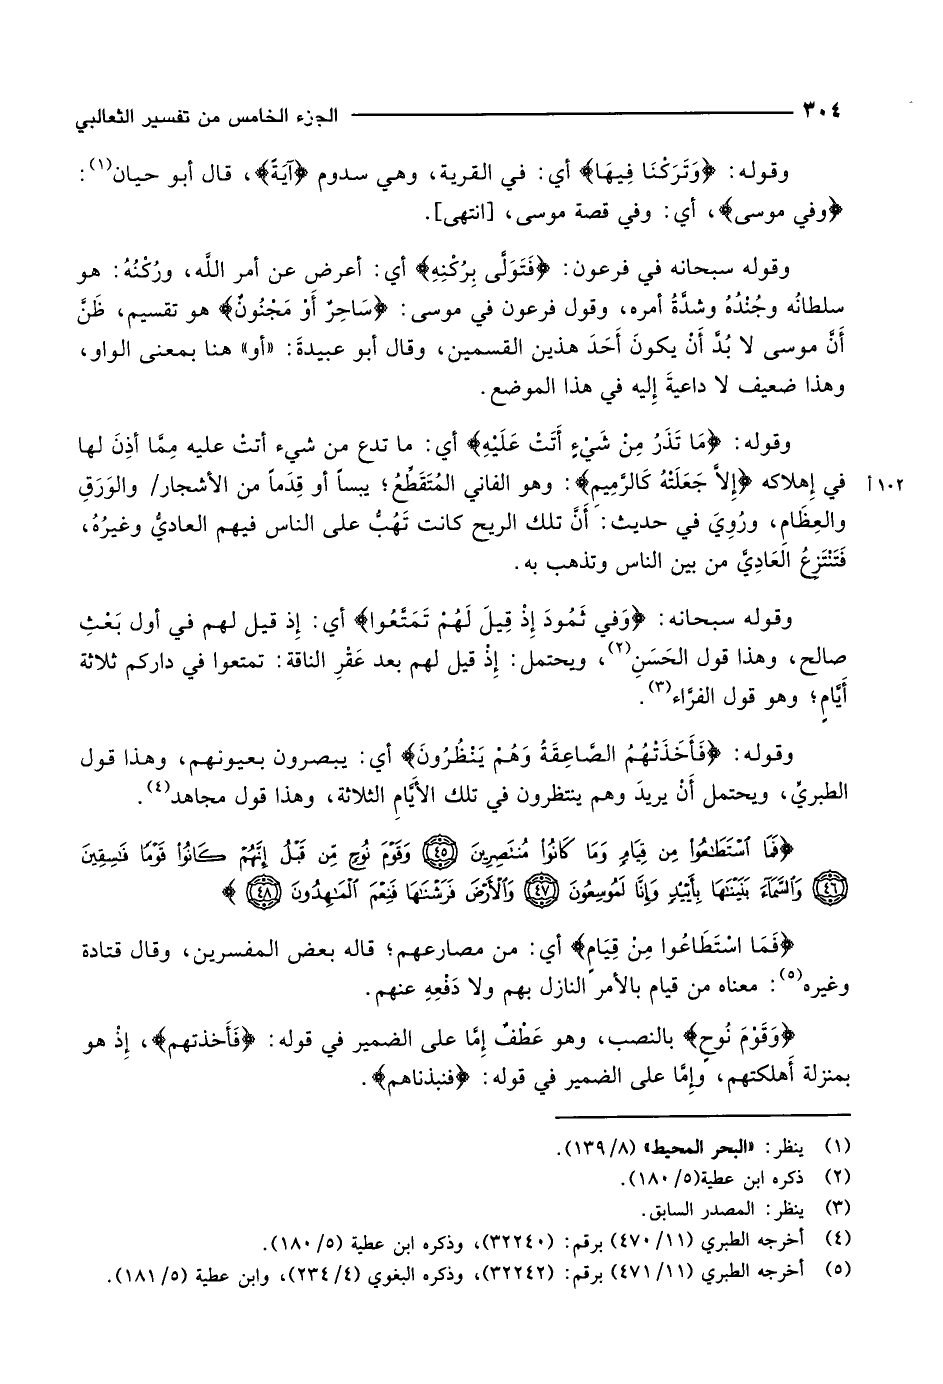 ٣٠٤ الجزء الخامس من تفسير الثعالبي
وقوله: ﴿وَتَرَكْنَا فِيهَا﴾ أي: في القرية، وهي سدوم ﴿آيَةً﴾، قال أبو حيان(١):
﴿وفي موسى﴾، أي: وفي قصة موسى، [انتهى].
وقوله سبحانه في فرعون: ﴿فَتَوَلَّى بِرُكْنِهِ﴾ أي: أعرض عن أمر الله، ورُكْنُهُ: هو
سلطانُه وجُنْدُهُ وشدَّةُ أمره، وقول فرعون في موسى: ﴿سَاحِرٌ أَوْ مَجْنُونٌ﴾ هو تقسيم، ظَنَّ
أَنَّ موسى لا بُدَّ أَنْ يكونَ أَحَدَ هذين القسمين، وقال أبو عبيدةَ: «أو» هنا بمعنى الواو،
وهذا ضعيف لا داعيةَ إليه في هذا الموضع.
وقوله: ﴿مَا تَذَرُ مِنْ شَيْءٍ أَتَتْ عَلَيْهِ﴾ أي: ما تدع من شيء أتتْ عليه مِمَّا أذِنَ لها
١٠٢ أ في إهلاكه ﴿إِلاَّ جَعَلَتْهُ كَالرَّمِيمِ﴾: وهو الفاني المُتَقَطِّعُ؛ يبساً أو قِدَماً من الأشجار/ والوَرَقِ
والعِظَامِ، ورُوِيَ في حديث: أَنَّ تلك الريح كانت تَهُبُّ على الناس فيهم العاديُّ وغيرُهُ،
فَتَنْتَزِعُ العَادِيَّ من بين الناس وتذهب به.
وقوله سبحانه: ﴿وَفي ثَمُودَ إِذْ قِيلَ لَهُمْ تَمَتَّعُوا﴾ أي: إذ قيل لهم في أول بَعْثِ
صالح، وهذا قول الحَسَنِ(٢)، ويحتمل: إِذْ قيل لهم بعد عَقْرِ الناقة: تمتعوا في داركم ثلاثة
أَيَّامٍ؛ وهو قول الفرَّاء(٣).
وقوله: ﴿فَأَخَذَتْهُمُ الصَّاعِقَةُ وَهُمْ يَنْظُرُونَ﴾ أي: يبصرون بعيونهم، وهذا قول
الطبريِّ، ويحتمل أَنْ يريدَ وهم ينتظرون في تلك الأَيَّامِ الثلاثة، وهذا قول مجاهد(٤).
﴿فَمَا ٱسْتَطَـٰعُوا۟ مِن قِيَامٍ وَمَا كَانُوا۟ مُنتَصِرِينَ ٤٥ وَقَوْمَ نُوحٍ مِّن قَبْلُ إِنَّهُمْ كَانُوا۟ قَوْمًا فَـٰسِقِينَ
٤٦ وَٱلسَّمَآءَ بَنَيْنَـٰهَا بِأَيْيْدٍ وَإِنَّا لَمُوسِعُونَ ٤٧ وَٱلْأَرْضَ فَرَشْنَـٰهَا فَنِعْمَ ٱلْمَـٰهِدُونَ ٤٨ ﴾
﴿فَمَا اسْتَطَاعُوا مِنْ قِيَامٍ﴾ أي: من مصارعهم؛ قاله بعض المفسرين، وقال قتادة
وغيره(٥): معناه من قيام بالأمر النازل بهم ولا دَفْعِهِ عنهم.
﴿وَقَوْمَ نُوحٍ﴾ بالنصب، وهو عَطْفٌ إمَّا على الضمير في قوله: ﴿فَأَخذتهم﴾، إِذْ هو
بمنزلة أَهلكتهم، وإمَّا على الضمير في قوله: ﴿فنبذناهم﴾.
(١) ينظر: «البحر المحيط» (٨/ ١٣٩).
(٢) ذكره ابن عطية(٥/ ١٨٠).
(٣) ينظر: المصدر السابق.
(٤) أخرجه الطبري (١١/ ٤٧٠) برقم: (٣٢٢٤٠)، وذكره ابن عطية (٥/ ١٨٠).
(٥) أخرجه الطبري (١١/ ٤٧١) برقم: (٣٢٢٤٢)، وذكره البغوي (٤/ ٢٣٤)، وابن عطية (٥/ ١٨١).